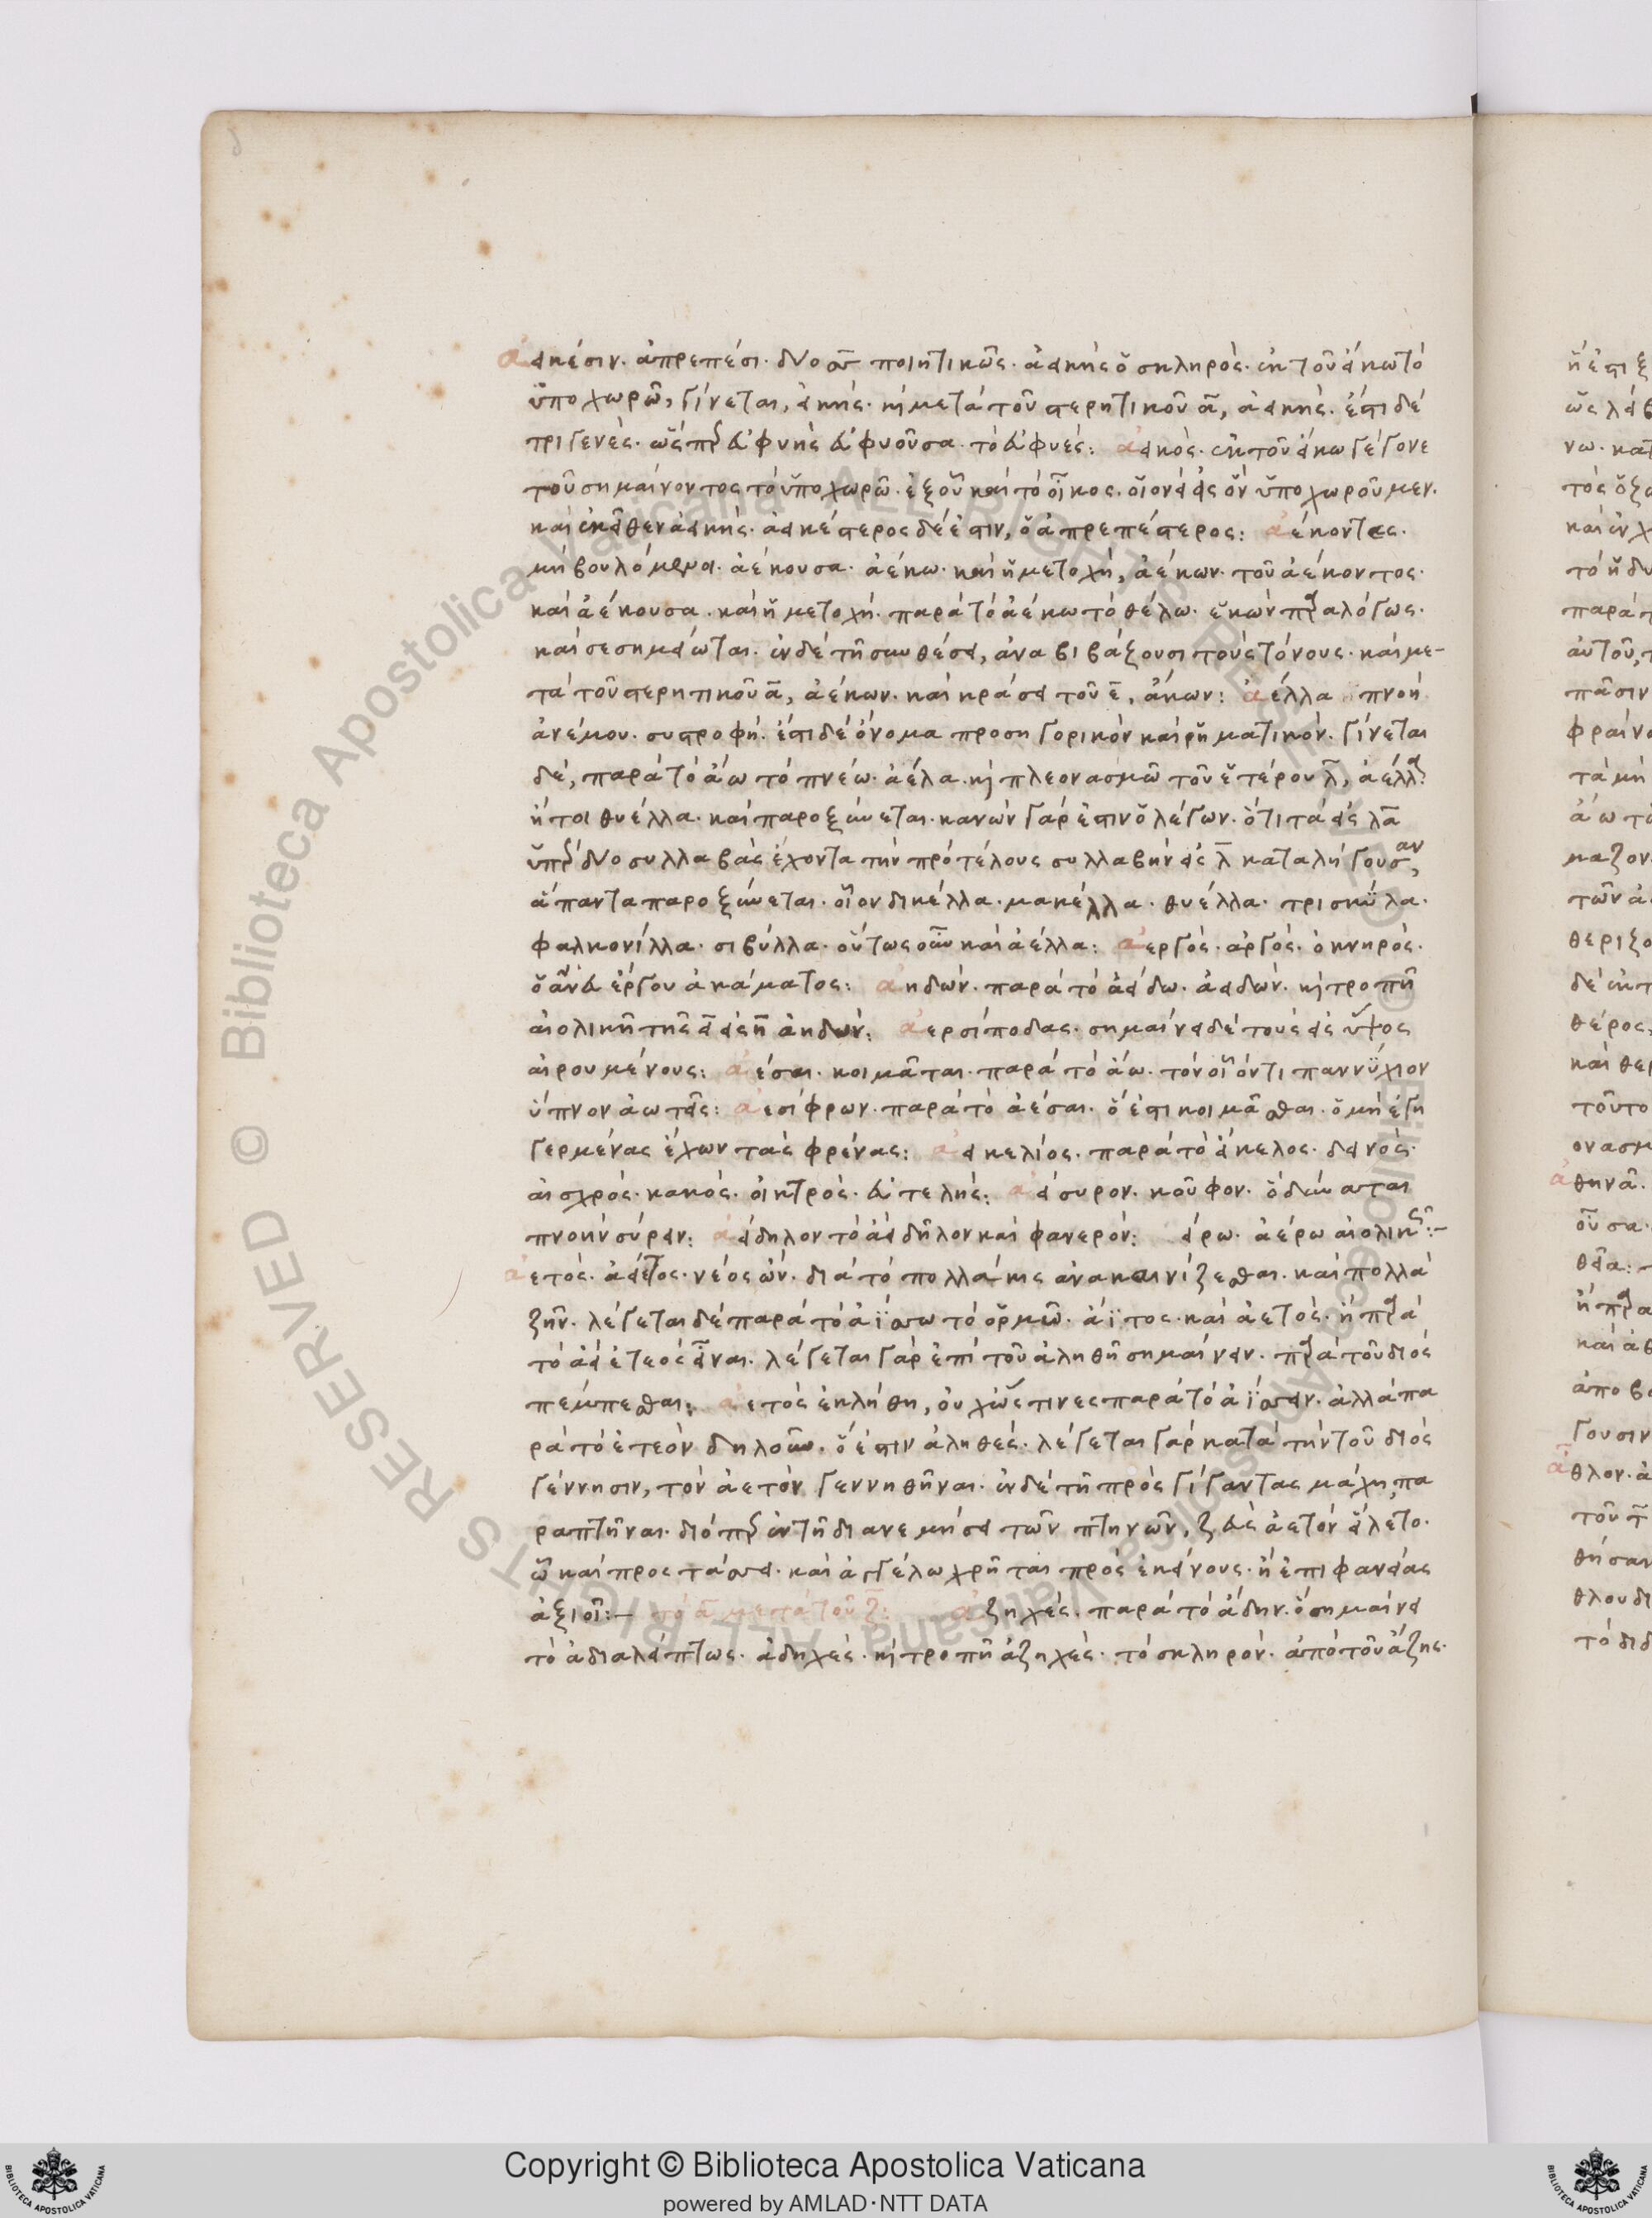 ἀεικέσιν. ἀπρεπέσι. δύο σ̅ ποιητικῶς. ἀεικὴς ὁ σκληρός. ἐκ τοῦ εἴκω τὸ
ὑποχωρῶ, γίνεται, εἰκής. καὶ μετὰ τοῦ στερητικοῦ α̅, ἀεικής. ἔστι δὲ
τριγενές. ὥσπερ εὐφυὴς εὐφυοῦσα. τὸ εὐφυές: ἀεικός. ἐκ τοῦ εἴκω γέγονε
τοῦ σημαίνοντος τὸ ὑποχωρῶ. ἐξ οὗ καὶ τὸ οἶκος. οἱονεὶ εἰς ὃν ὑποχωροῦμεν.
καὶ ἐκεῖθεν ἀεικής. ἀεικέστερος δέ ἐστιν, ὁ ἀπρεπέστερος: ἀέκοντες.
μὴ βουλόμενοι. ἀέκουσα. ἀέκω. καὶ ἡ μετοχή, ἀέκων. τοῦ ἀέκοντος.
καὶ ἀέκουσα. καὶ ἡ μετοχή. παρὰ τὸ ἀέκω τὸ θέλω. ἑκὼν παραλόγως.
καὶ σεσημείωται. ἐν δὲ τῇ συνθέσει, ἀναβιβάζουσι τοὺς τόνους. καὶ με-
τὰ τοῦ στερητικοῦ α̅, ἀέκων. καὶ κράσει τοῦ ε̅, ἄκων: ἄελλα πνοὴ
ἀνέμου. συστροφή. ἔστι δὲ ὄνομα προσηγορικὸν καὶ ῥηματικόν. γίνεται
δέ, παρὰ τὸ ἄω τὸ πνέω. ἀέλα. καὶ πλεονασμῷ τοῦ ἑτέρου λ̅, ἀέλλα.
ἤτοι θυέλλα. καὶ παροξύνεται. κανὼν γάρ ἐστιν ὁ λέγων. ὅτι τὰ εἰς λα̅
ὑπὲρ δύο συλλαβὰς ἔχοντα τὴν πρὸ τέλους συλλαβὴν εἰς λ̅ καταλήγουσαν,
ἅπαντα παροξύνεται. οἷον δικέλλα. μακέλλα. θυέλλα. τρισκύλα.
φαλκονίλλα. σιβύλλα. οὕτως οὖν καὶ ἀέλλα: ἀεργός. ἀργός. ὀκνηρός.
ὁ ἄνευ ἔργου ἀκάματος: ἀηδών. παρὰ τὸ ἀείδω. ἀειδών. καὶ τροπῇ
αἰολικῇ τῆς ει̅ εἰς η̅ ἀηδών: ἀερσίποδας. σημαίνει δὲ τοὺς εἰς ὕψος
αἰρουμένους: ἀέσαι. κοιμᾶται. παρὰ τὸ ἄω. τὸν οἱόντι παννύχιον
ὕπνον ἀωτεῖς: ἀεσίφρων. παρὰ τὸ ἀέσαι. ὅ ἐστι κοιμᾶσθαι. ὁ μὴ ἐγη
γερμένας ἔχων τὰς φρένας: ἀεικελίος. παρὰ τὸ εἴκελος. δεινός.
αἰσχρός. κακός. οἰκτρός. εὐτελής: ἀείσυρον. κοῦφον. ὃ δύναται
πνοὴν σύρειν: ἀείδηλον τὸ ἀεὶ δῆλον καὶ φανερόν: είρω. ἀέρω αἰολικῶς:-
ἀετός. ἀείετος. νέος ὤν. διὰ τὸ πολλάκις ἀνακαινίζεσθαι. καὶ πολλὰ
ζῆν. λέγεται δὲ παρὰ τὸ ἀΐσσω τὸ ὁρμῶ. ἀΐτος. καὶ ἀετός. ἢ παρὰ
τὸ ἀεὶ ἐτεὸς εἶναι. λέγεται γὰρ ἐπὶ τοῦ ἀληθῆ σημαίνειν. παρὰ τοῦ διὸς
πέμπεσθαι: ἀετὸς ἐκλήθη, οὐχ ὥς τινες παρὰ τὸ ἀΐσσειν. ἀλλὰ πα
ρὰ τὸ ἐτεὸν δηλοῦν. ὅ ἐστιν ἀληθές. λέγεται γὰρ κατὰ τὴν τοῦ διὸς
γέννησιν, τὸν ἀετὸν γεννηθῆναι. ἐν δὲ τῇ πρὸς γίγαντας μάχῃ, πα
ραπτῆναι. διόπερ ἐν τῇ διανεμήσει τῶν πτηνῶν, ζεὺς ἀετὸν εἵλετο.
ᾧ καὶ προστάσσει. καὶ ἀγγέλω χρῆται πρὸς ἐκείνους. ἢ ἐπιφανείας
ἀξιοῖ:— τὸ α̅ μετὰ τοῦ ζ: ἀζηχές. παρὰ τὸ ἄδην. ὃ σημαίνει
τὸ ἀδιαλείπτως. ἀδηχές. καὶ τροπῇ ἀζηχές. τὸ σκληρόν. ἀπὸ τοῦ ἄζης.
Copyright © Biblioteca Apostolica Vaticana
powered by AMLAD・NTT DATA